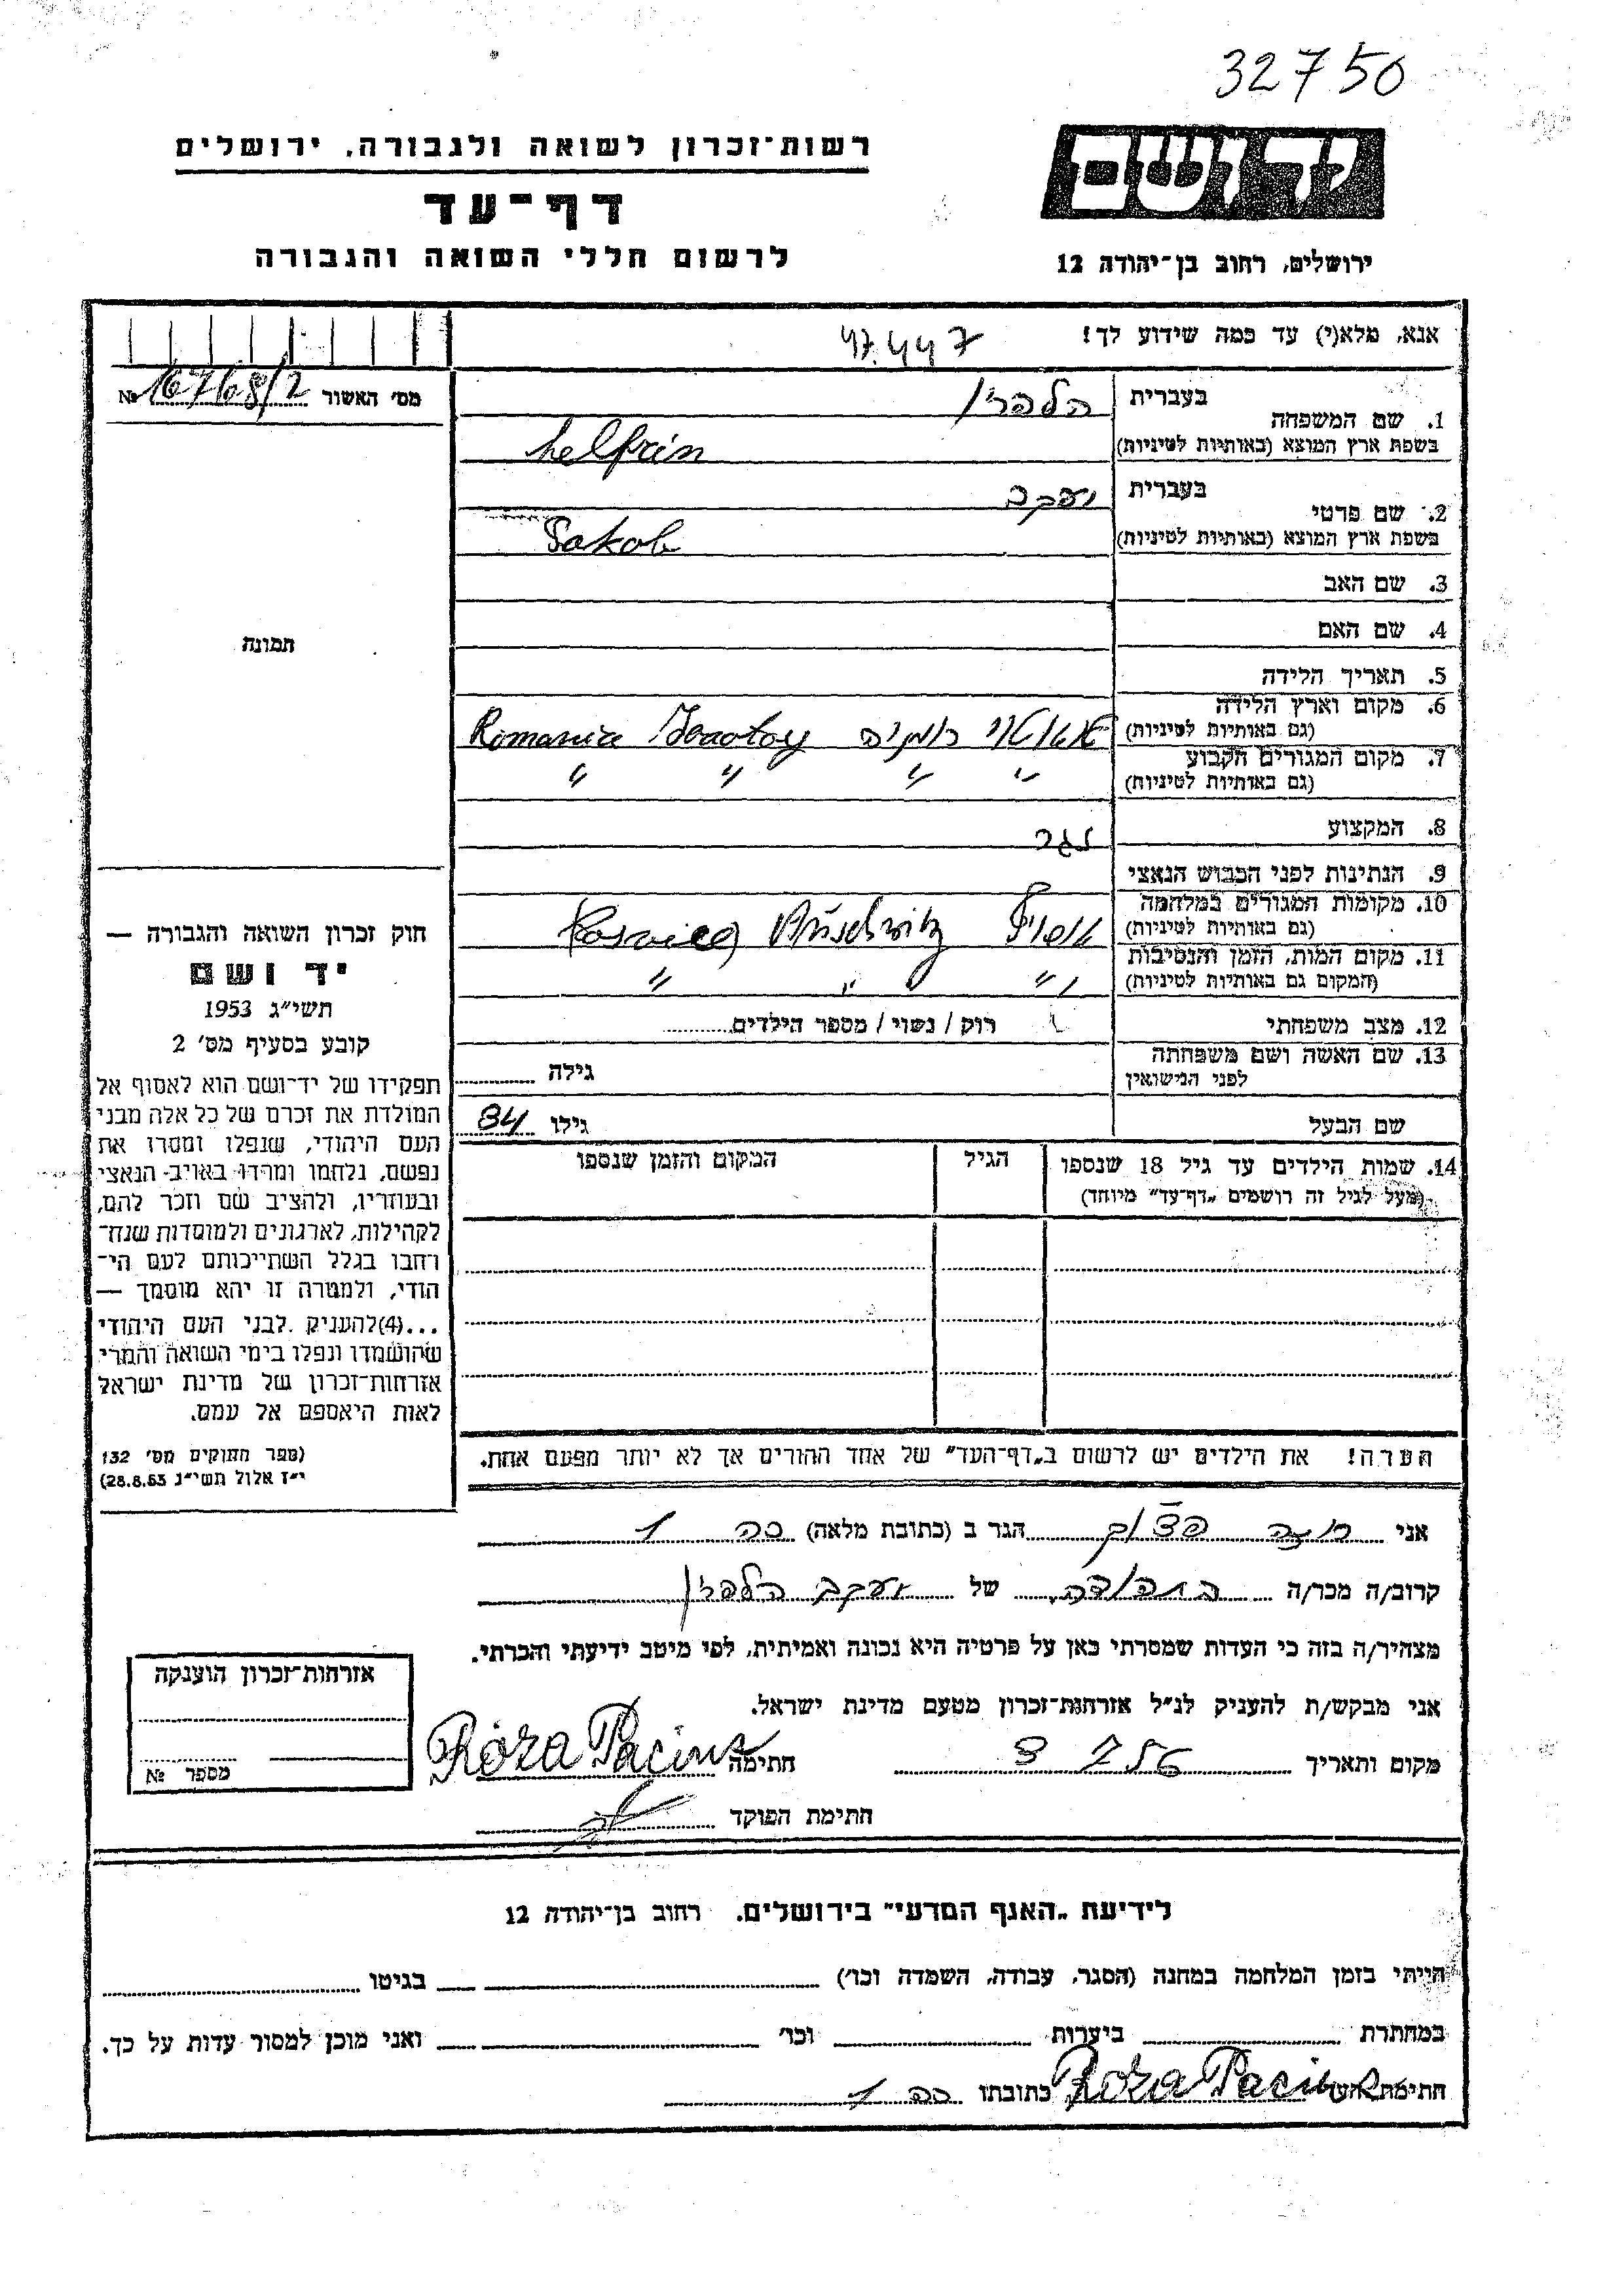 32750
רשות־זכרון לשואה ולגבורה, ירושלים
דף־עד
לרשום חללי השואה והגבורה
יד ושם
ירושלים, רחוב בן־יהודה 12
אנא, מלא(י) עד כמה שידוע לך!
47.447
מס׳ האשור № 16768/2
1. שם המשפחה
בעברית הלפרין
בשפת ארץ המוצא (באותיות לטיניות) helfrin
2. שם פרטי
בעברית יעקב
בשפת ארץ המוצא (באותיות לטיניות) Jakob
3. שם האב
4. שם האם
5. תאריך הלידה
6. מקום וארץ הלידה
(גם באותיות לטיניות) רומניה Romania
7. מקום המגורים הקבוע
(גם באותיות לטיניות) " " " "
8. המקצוע
9. הנתינות לפני הכבוש הנאצי
10. מקומות המגורים במלחמה
(גם באותיות לטיניות)
11. מקום המות, הזמן והנסיבות
(המקום גם באותיות לטיניות) " " "
12. מצב משפחתי רוק / נשוי / מספר הילדים
13. שם האשה ושם משפחתה
לפני הנישואין
גילה
שם הבעל
גילו 84
14. שמות הילדים עד גיל 18 שנספו
(מעל לגיל זה רושמים „דף־עד" מיוחד)
הגיל
המקום והזמן שנספו
הערה! את הילדים יש לרשום ב„דף־העד" של אחד ההורים אך לא יותר מפעם אחת.
תמונה
חוק זכרון השואה והגבורה —
יד ושם
תשי"ג 1953
קובע בסעיף מס׳ 2
תפקידו של יד־ושם הוא לאסוף אל
המולדת את זכרם של כל אלה מבני
העם היהודי, שנפלו ומסרו את
נפשם, נלחמו ומרדו באויב הנאצי
ובעוזריו, ולהציב שם וזכר להם,
לקהילות, לארגונים ולמוסדות שנח־
רחבו בגלל השתייכותם לעם הי־
הודי, ולמטרה זו יהא מוסמך —
...(4)להעניק לבני העם היהודי
שהושמדו ונפלו בימי השואה והמרי
אזרחות־זכרון של מדינת ישראל
לאות היאספם אל עמם.
(ספר החוקים מס׳ 132
י"ז אלול תשי"ג 28.8.53)
אני רוזה הגר ב (כתובת מלאה) 1
קרוב/ה מכר/ה של יעקב הלפרין
מצהיר/ה בזה כי העדות שמסרתי כאן על פרטיה היא נכונה ואמיתית, לפי מיטב ידיעתי והכרתי.
אני מבקש/ת להעניק לנ"ל אזרחות־זכרון מטעם מדינת ישראל.
מקום ותאריך 3 7 56 חתימה Róza Pacina
חתימת הפוקד
אזרחות־זכרון הוענקה
מספר №
לידיעת „האגף המדעי" בירושלים, רחוב בן־יהודה 12
הייתי בזמן המלחמה במחנה (הסגר, עבודה, השמדה וכו׳) בגיטו
במחתרת ביערות וכו׳ ואני מוכן למסור עדות על כך.
חתימת העד Róza Pacina כתובתו 1